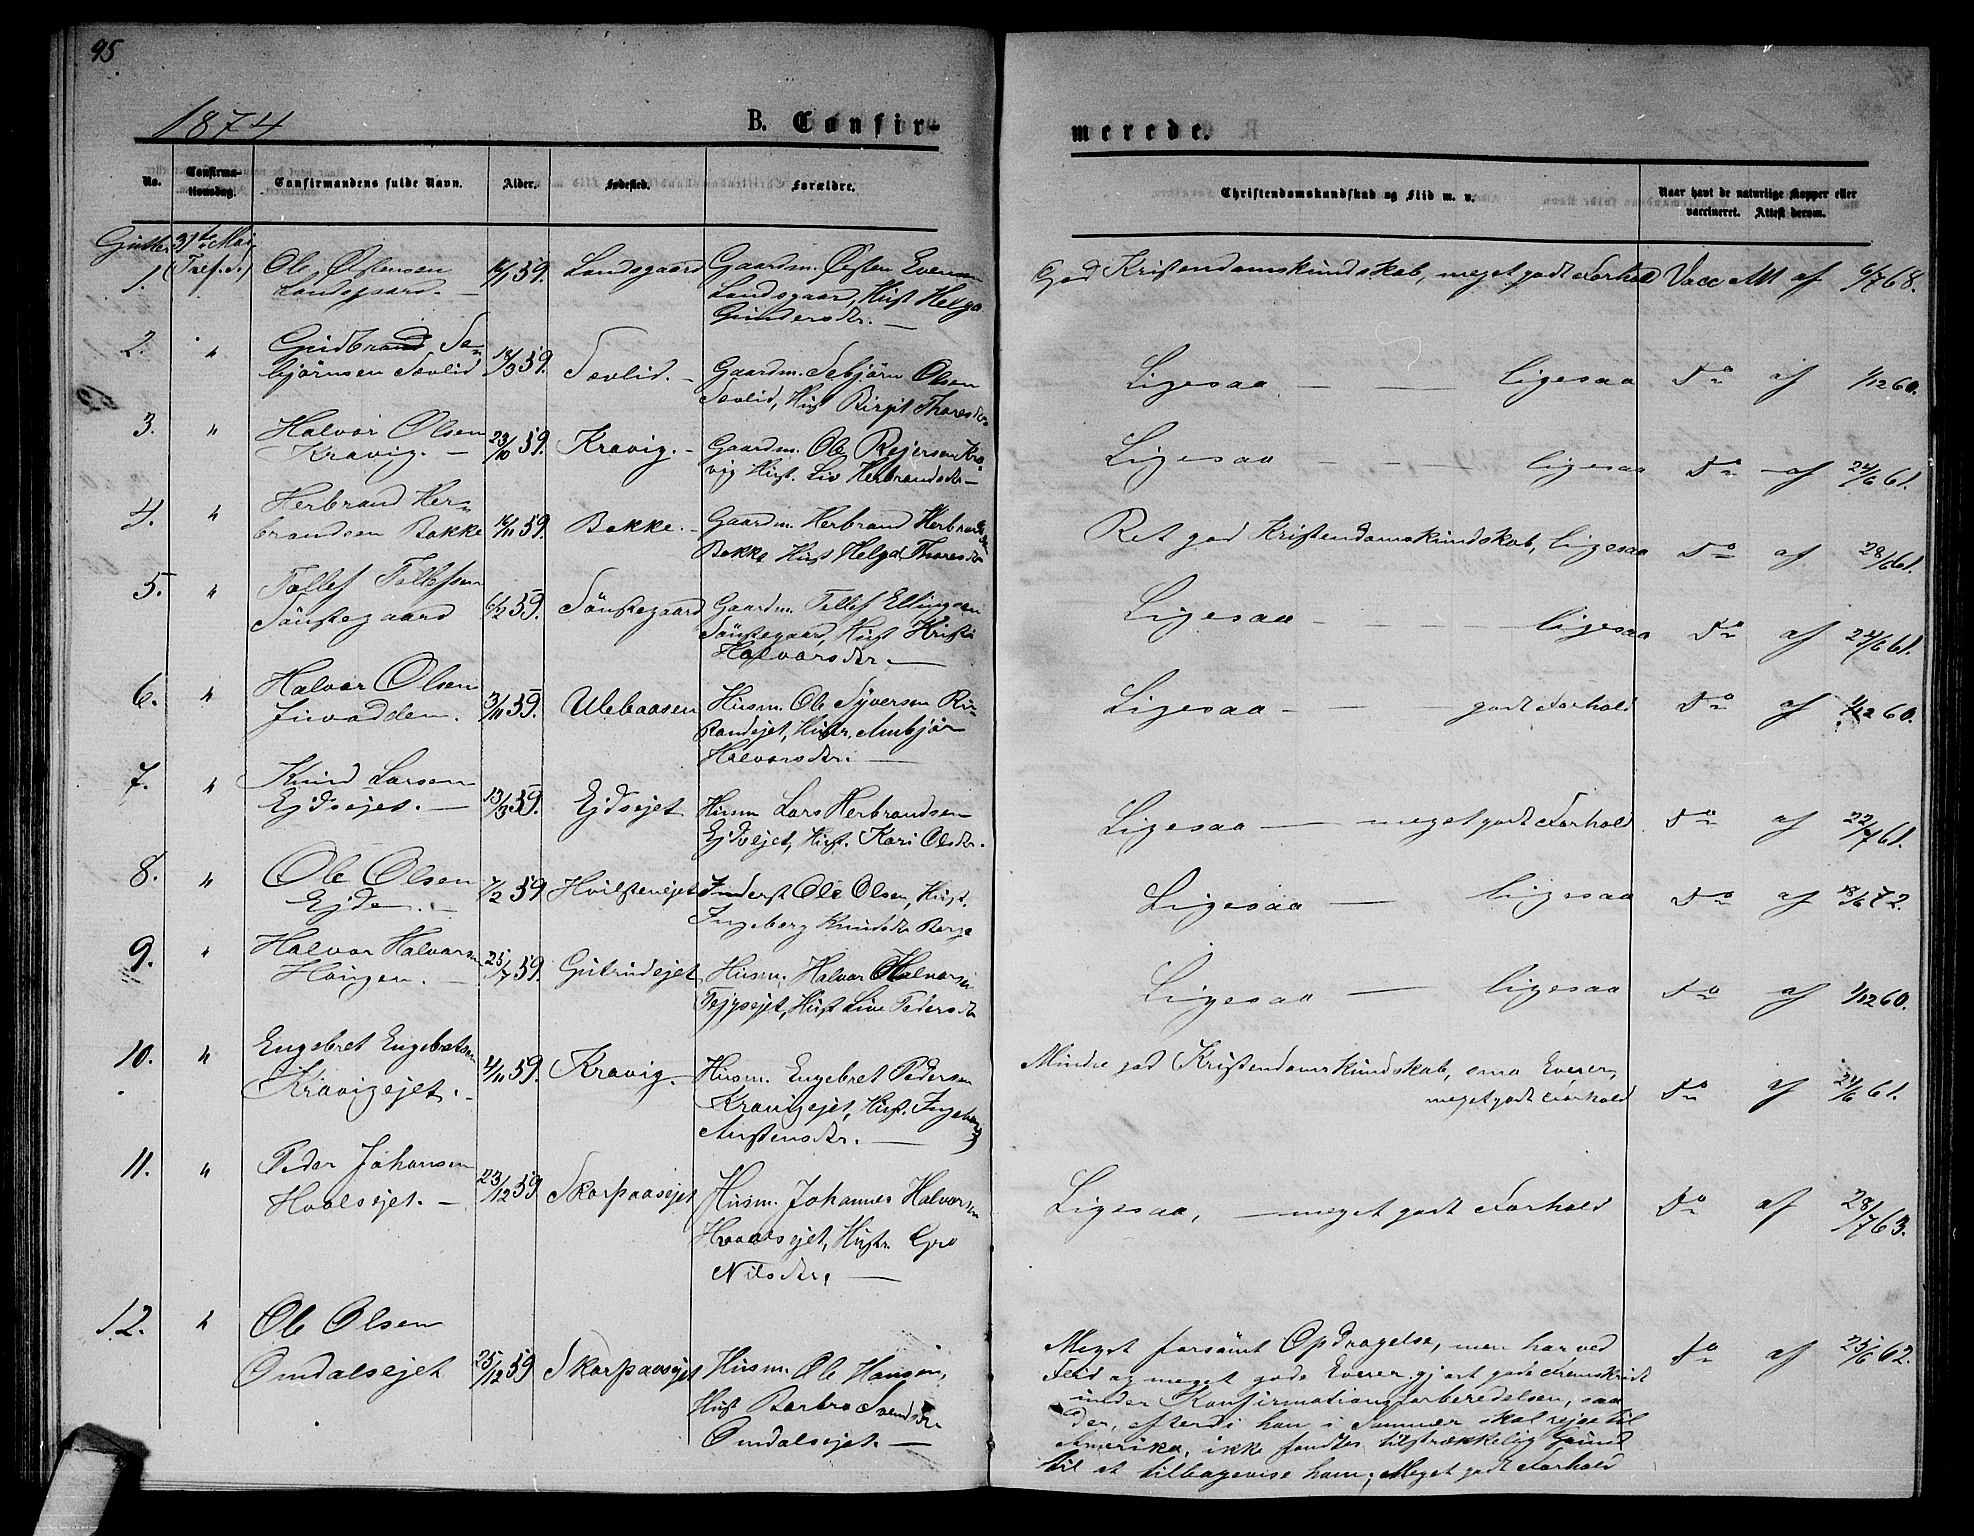 95
1874
B. Confir-
merede.
No.
Confirma-
tionsdag.
Confirmandens fulde Navn.
Alder.
Fødested.
Forældre.
Christendomskundskab og Flid m. v.
Naar havt de naturlige Kopper eller
vaccineret. Attest derom.
Gutter 31te Mai
1. (Tref. S.) Ole Østensen 59. Landsgaard Gaardm. Østen Evensen God Kristendomskundskab, meget godt Forhold Vacc Att af 6/7 68.
Landsgaard. — Landsgaard, Hust Helga
Gundersdr. —
2. " Gudbrand Se-
bjørnsen Sævlid 18/3 59. Sævlid. - Gaardm. Sebjørn Olsen Ligesaa — — ligesaa Do af 1/12 60.
Sævlid, Hust Birgit Thoresdr
3. " Halvor Olsen 23/10 59. Kravig. - Gaardm. Ole Rejersen Kra- Ligesaa - - - ligesaa Do af 24/6 61.
Kravig. — vig Hust. Liv Herbrandsdr —
4. " Herbrand Her-
brandsen Bakke 59. Bakke. - Gaardm. Herbrand Herbrandsen Ret god Kristendomskundskab, ligesaa Do af 28/6 61.
Bakke Hust Helga Thoresdr
5. " Tollef Tollefsen 6/2 59. Sönstegaard Gaardm. Tollef Ellingsen Ligesaa - - - ligesaa Do af 24/6 61.
Sönstegaard Sönstegaard, Hust Kristi
Halvorsdr. —
6. " Halvor Olsen 3/11 59. Ulebaasen Husm. Ole Syversen Ligesaa - - godt Forhold Do af 1/12 60.
Juvadden. Hustr. Ambjør
Halvorsdr. —
7. " Knud Larsen 13/3 59. Ejdsejet Husm Lars Herbrandsen Ligesaa — meget godt Forhold Do af 22/7 61.
Ejdsejet. — Ejdsejet, Hust. Kari Olsdr.
8. " Ole Olsen 7/2 59 Hvilstenejet Inderst Ole Olsen, Hust. Ligesaa — ligesaa Do af 18/6 72.
Ejde. — Ingeborg Knudsdr Berge
9. " Halvor Halvorsen 25/7 59. Gutrudejet Husm. Halvor Halvorsen Ligesaa — ligesaa Do af 1/12 60.
Haugen. — Hust Live Pedersdr
10. " Engebret Engebretsen 4/11 59. Kravig. - Husm. Engebret Pedersen Mindre god Kristendomskundskab, smaa Evner,
Kravigejet. - Kravigejet, Hust. Ingeborg meget godt Forhold Do af 24/6 61.
Kirstensdr. —
11. " Peder Johansen 23/12 59 Skarpaasejet Husm. Johannes Halvorsen Ligesaa, — meget godt Forhold Do af 28/7 63.
Hvalsejet. — Hvalsejet, Hustr. Gro
Nilsdr. —
12. " Ole Olsen
Omdalsejet 25/12 59 Skarpaasejet Husm. Ole Hansen, Meget forsømt Opdragelse, men har ved Do af 25/6 62.
Hust Barbro Svendsdr Flid og meget gode Evner gjort gode Fremskridt
Omdalsejet. — under Konfirmationsforberedelsen, saa
der, efterdi han i Sommer skal rejse til
Amerika, ikke fandtes tilstrækkelig Grund
til at tilbagevise ham; Meget godt Forhold